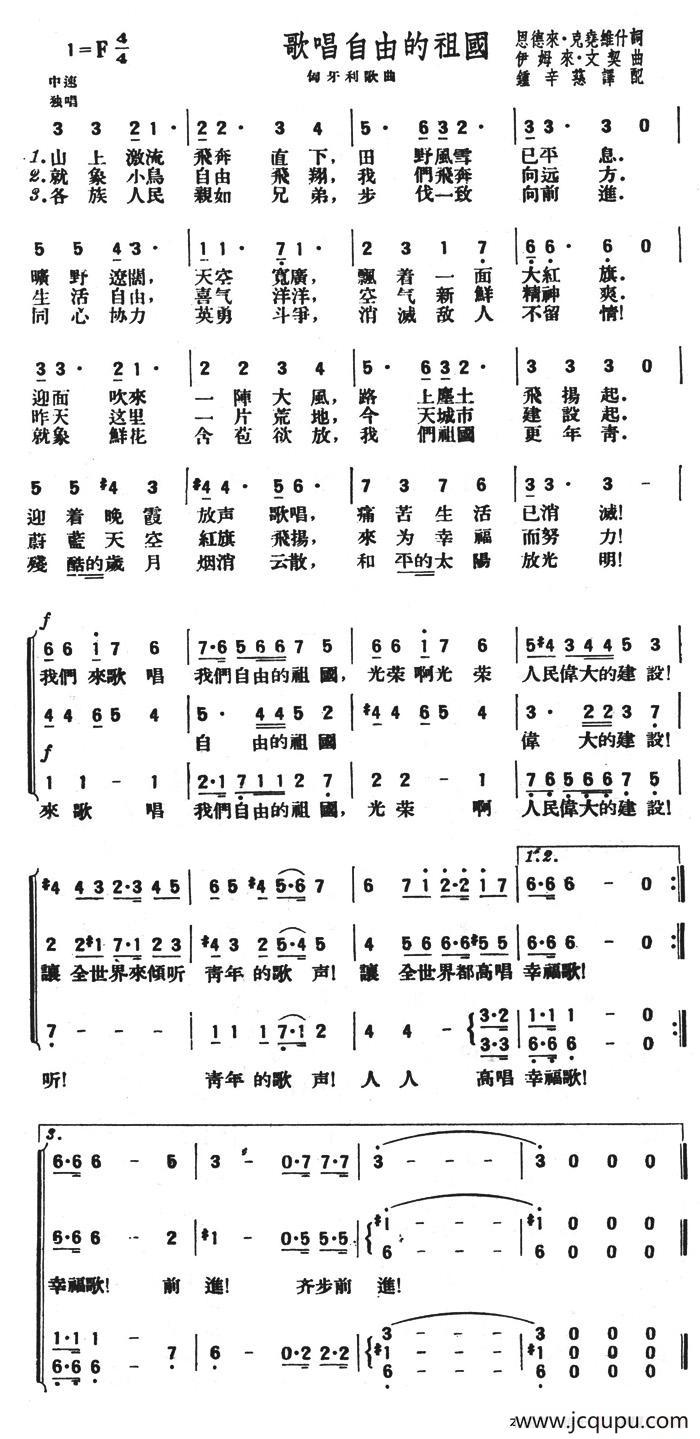 歌唱自由的祖國
1=F 4/4
匈牙利歌曲
恩德來·克堯維什詞
伊姆來·文契曲
鍾辛慈譯配
中速
独唱
3 3 2 1· | 2 2· 3 4 | 5· 6 3 2· | 3 3· 3 0
1. 山上激流 飛奔直下, 田野風雪 已平息.
2. 就象小鳥 自由飛翔, 我們飛奔 向远方.
3. 各族人民 親如兄弟, 步伐一致 向前進.
5 5 4 3· | 1 1· 7 1· | 2 3 1 7 | 6 6· 6 0
曠野遼闊, 天空寬廣, 飄着一面 大紅旗.
生活自由, 喜气洋洋, 空气新鮮 精神爽.
同心协力 英勇斗爭, 消滅敌人 不留情!
3 3· 2 1· | 2 2 3 4 | 5· 6 3 2· | 3 3 3 0
迎面吹來 一陣大風, 路上塵土 飛揚起.
昨天这里 一片荒地, 今天城市 建設起.
就象鮮花 含苞欲放, 我們祖國 更年青.
5 5 #4 3 | #4 4· 5 6· | 7 3 7 6 | 3 3· 3 -
迎着晚霞 放声歌唱, 痛苦生活 已消滅!
蔚藍天空 紅旗飛揚, 來为幸福 而努力!
殘酷的歲月 烟消云散, 和平的太陽 放光明!
f
6 6 1 7 6 | 7·6 5 6 6 7 5 | 6 6 1 7 6 | 5 #4 3 4 4 5 3
我們來歌唱 我們自由的祖國, 光荣啊光荣 人民偉大的建設!
4 4 6 5 4 | 5· 4 4 5 2 | #4 4 6 5 4 | 3· 2 2 3 7
自由的祖國 偉大的建設!
f
1 1 - 1 | 2·1 7 1 1 2 7 | 2 2 - 1 | 7 6 5 6 6 7 5
來歌唱 我們自由的祖國, 光荣啊 人民偉大的建設!
1.2.
#4 4 3 2·3 4 5 | 6 5 #4 5·6 7 | 6 7 1 2·2 1 7 | 6·6 6 - 0
2 2 #1 7·1 2 3 | #4 3 2 5·4 5 | 4 5 6 6·6 #5 5 | 6·6 6 - 0
讓全世界來傾听 青年的歌声! 讓全世界都高唱幸福歌!
7 - - - | 1 1 1 7·1 2 | 4 4 - 3·2 | 1·1 1 - 0
3·3 | 6·6 6 - 0
听! 青年的歌声! 人人高唱幸福歌!
3.
6·6 6 - 5 | 3 - 0·7 7·7 | 3 - - - | 3 0 0 0
6·6 6 - 2 | #1 - 0·5 5·5 | #1 - - - | #1 0 0 0
6 - - - | 6 0 0 0
幸福歌! 前進! 齐步前進!
1·1 1 - 7 | 6 - 0·2 2·2 | 3 - - - | 3 0 0 0
6·6 6 - | #1 - - - | #1 0 0 0
6 - - - | 6 0 0 0
www.jcqupu.com